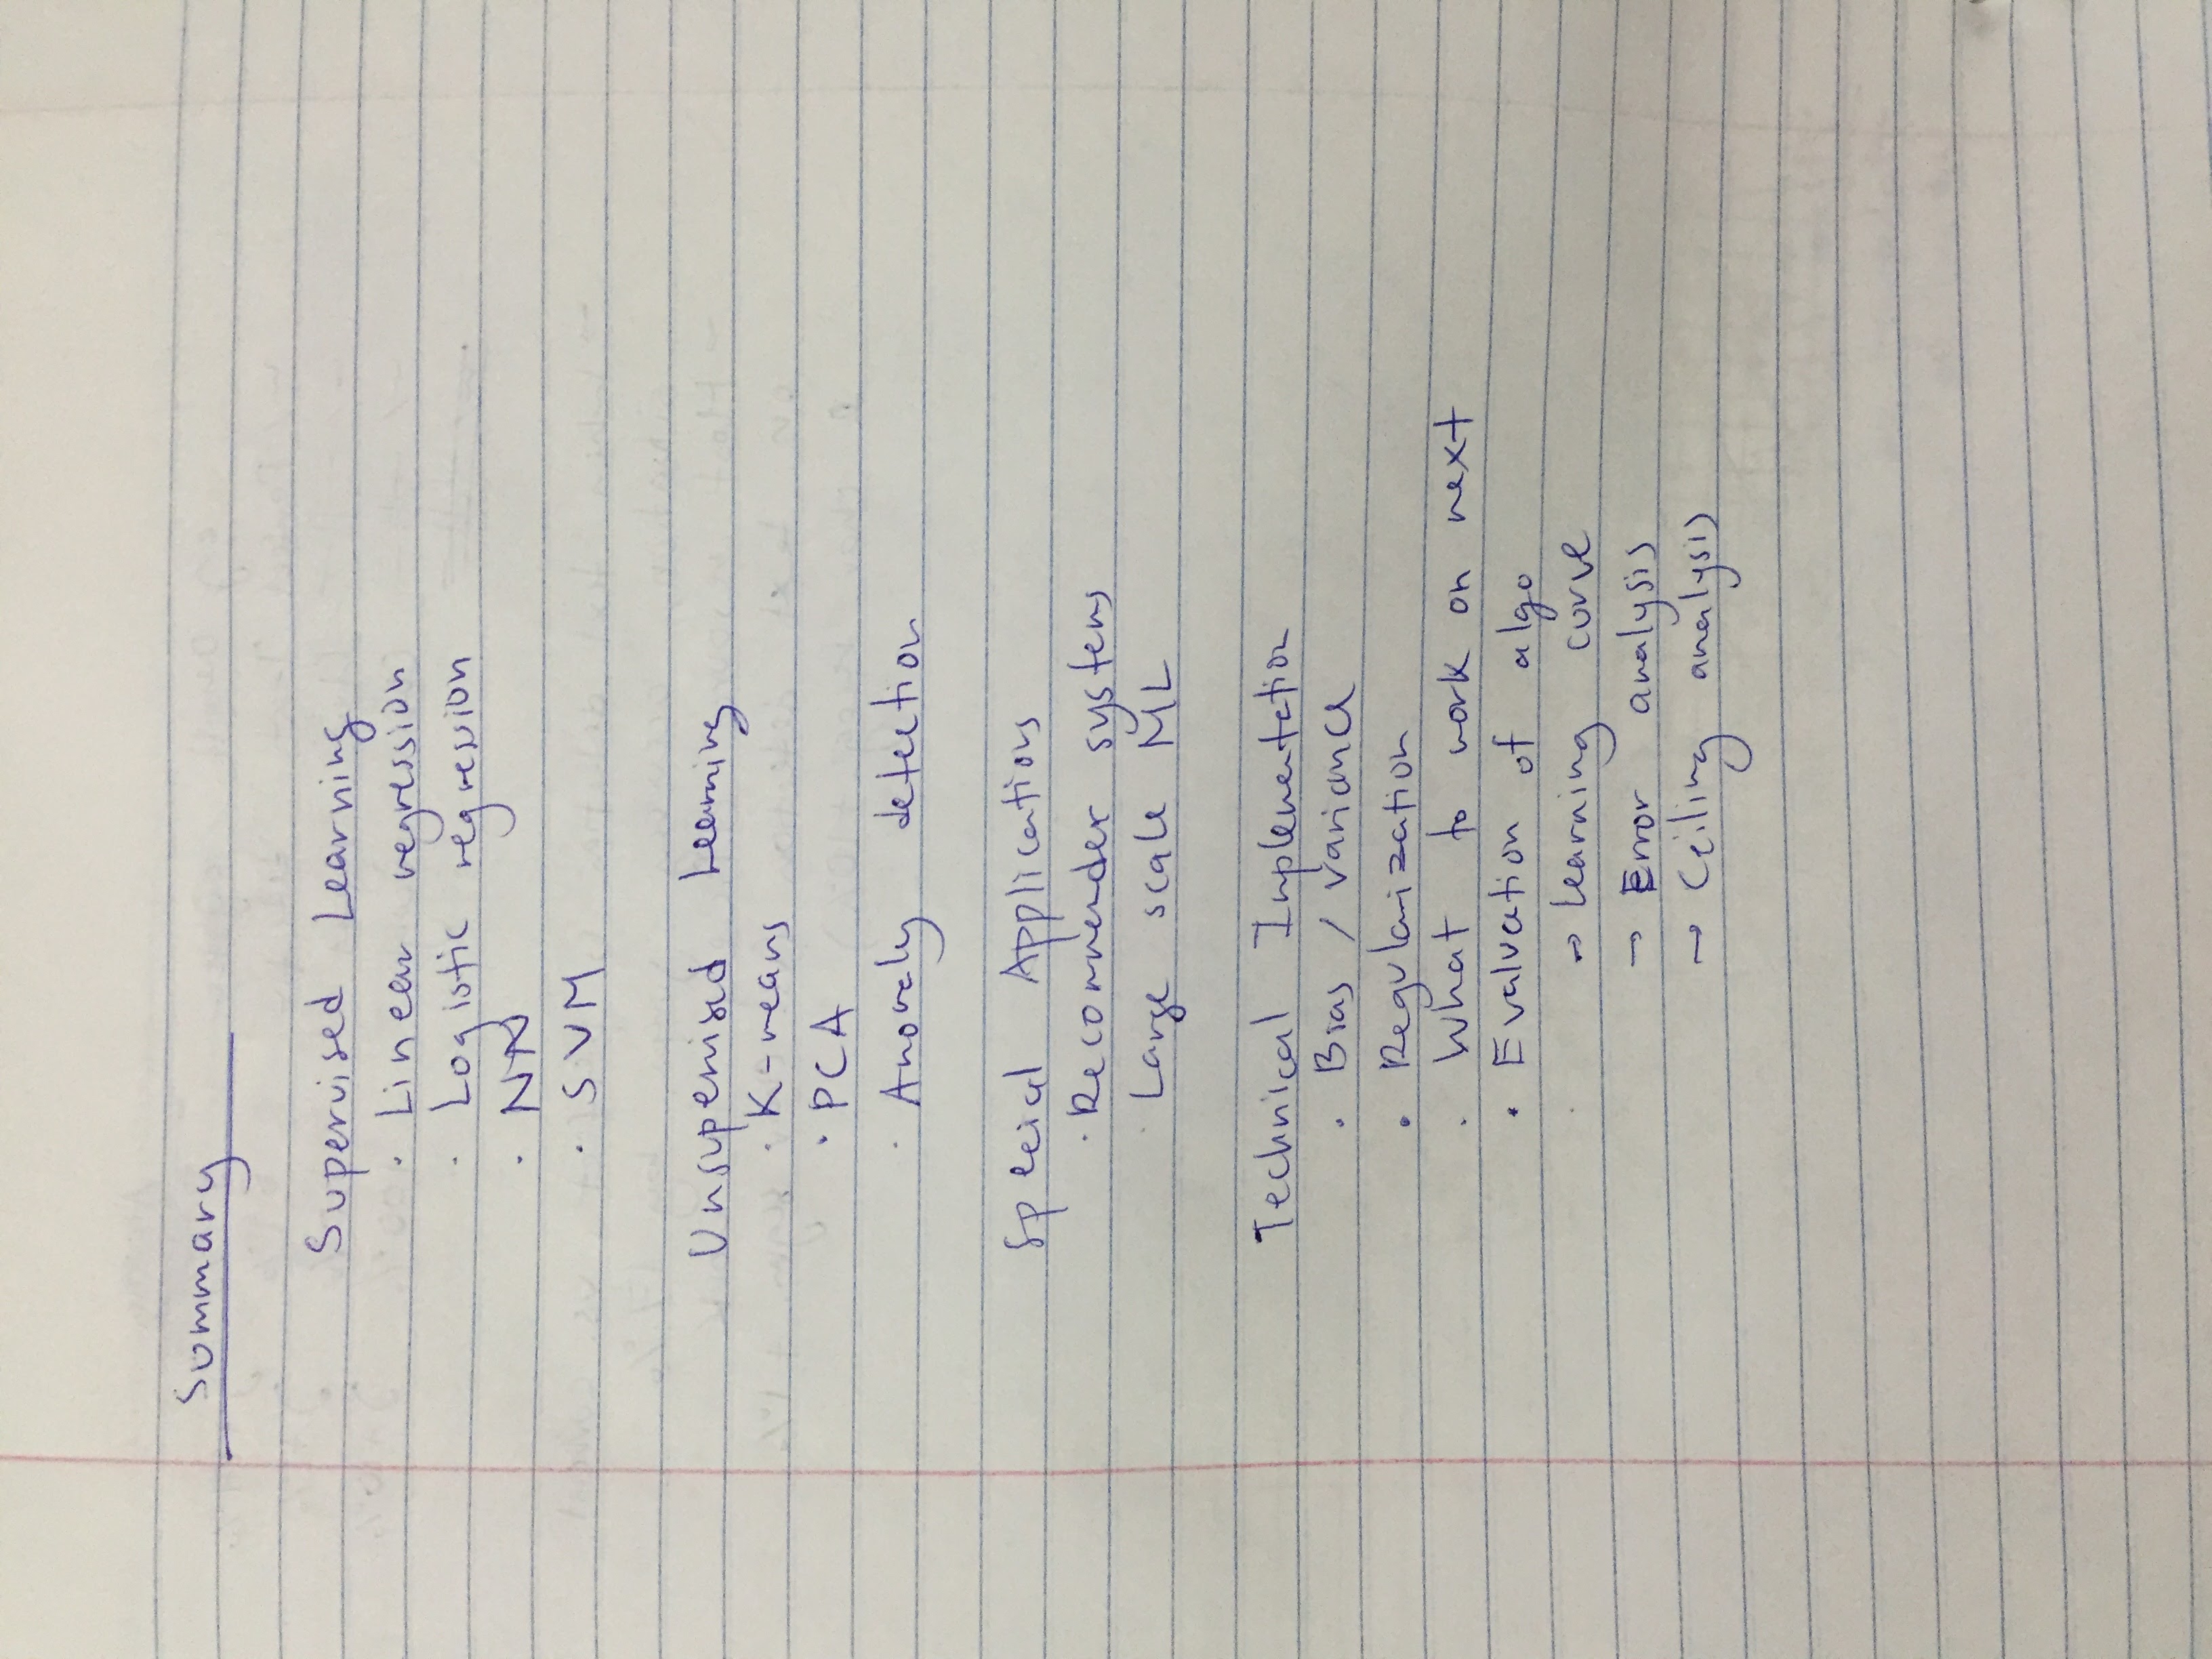 Summary
Supervised Learning
· Linear regression
· Logistic regression
· NN
· SVM
Unsupervised Learning
· K-means
· PCA
· Anomaly detection
Special Applications
· Recommender systems
· Large scale ML
Technical Implementation
· Bias / variance
· Regularization
· What to work on next
· Evaluation of algo
→ Learning curve
→ Error analysis
→ Ceiling analysis